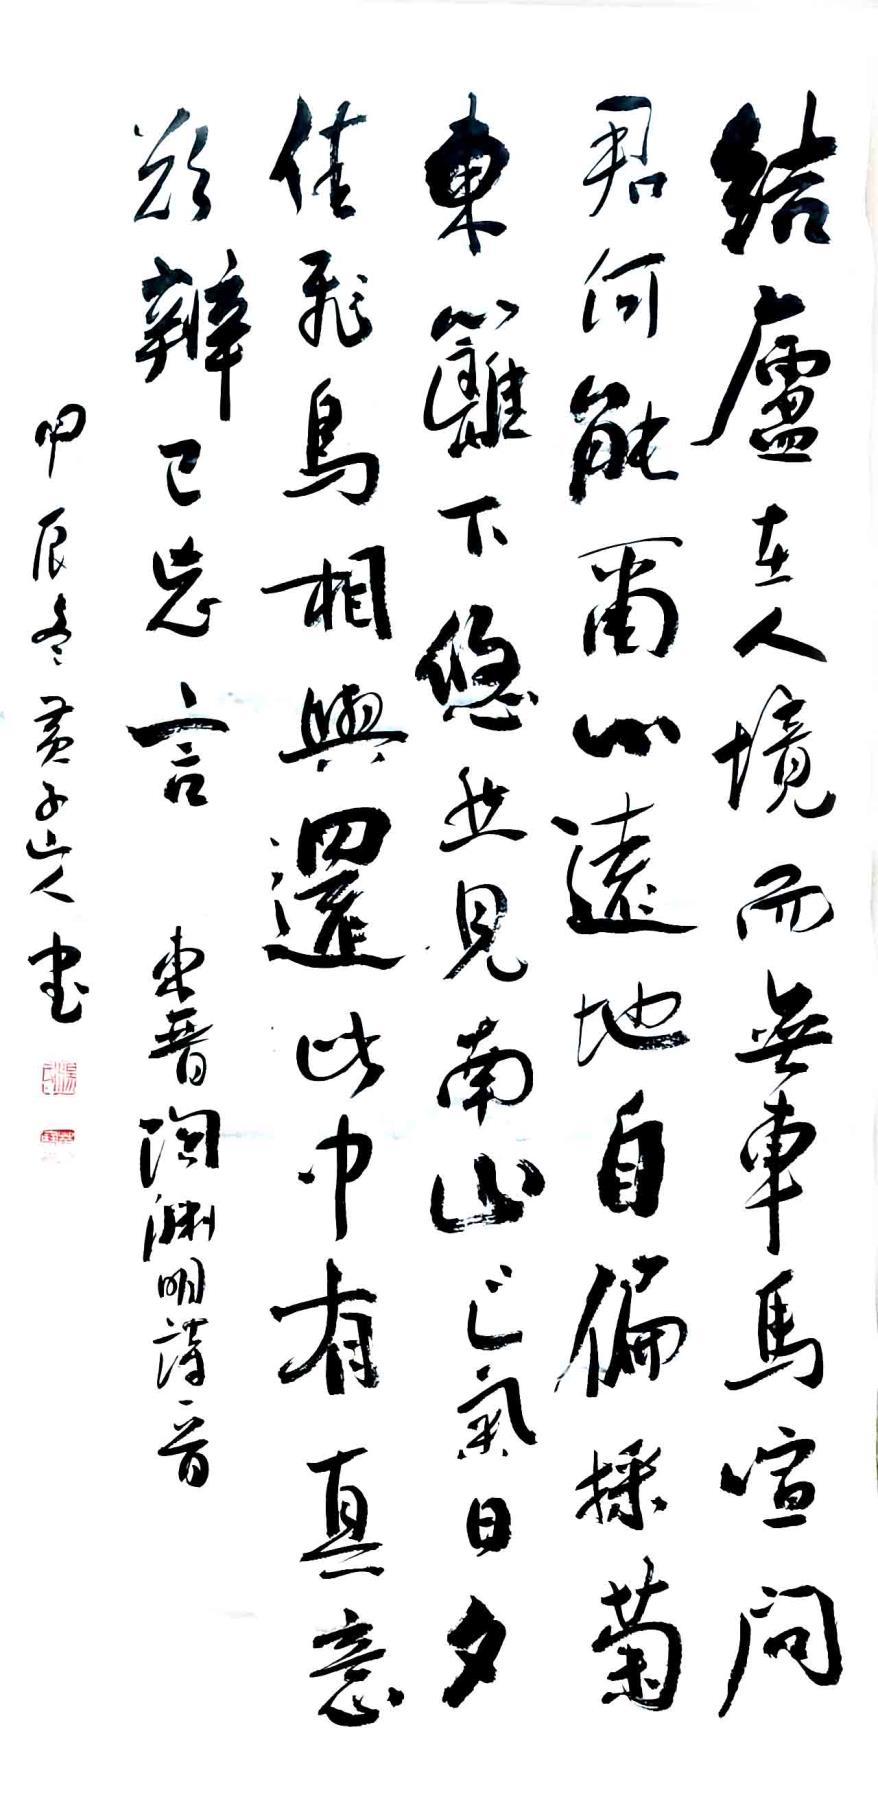 結廬在人境而無車馬喧問
君何能爾心遠地自偏採菊
東籬下悠然見南山山氣日夕
佳飛鳥相與還此中有真意
欲辨已忘言 東晉陶淵明詩一首
甲辰冬黃子山人書